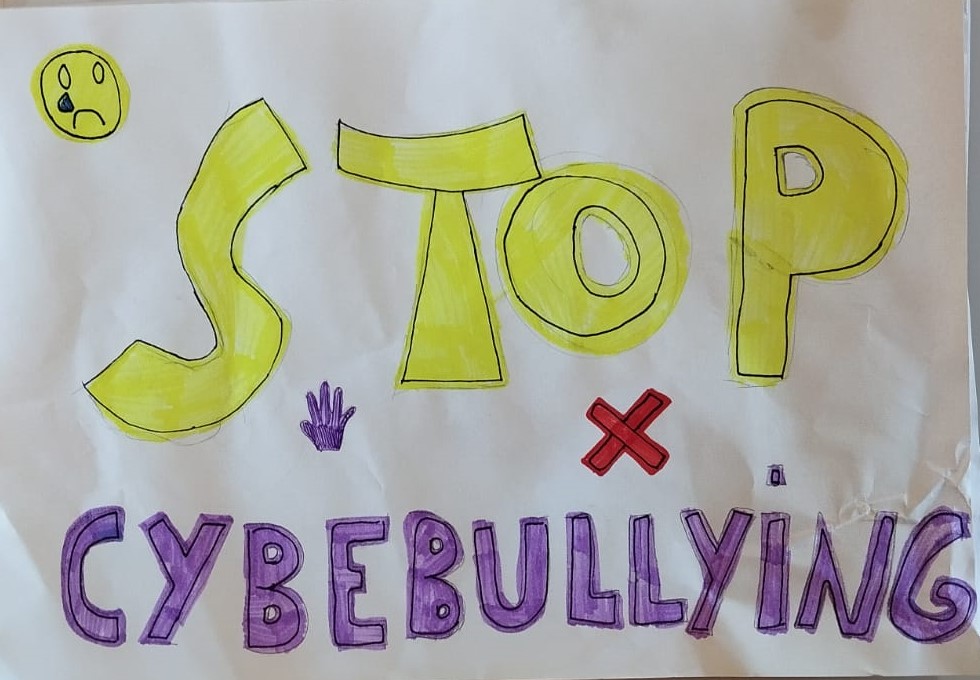 STOP
CYBEBULLYiNG